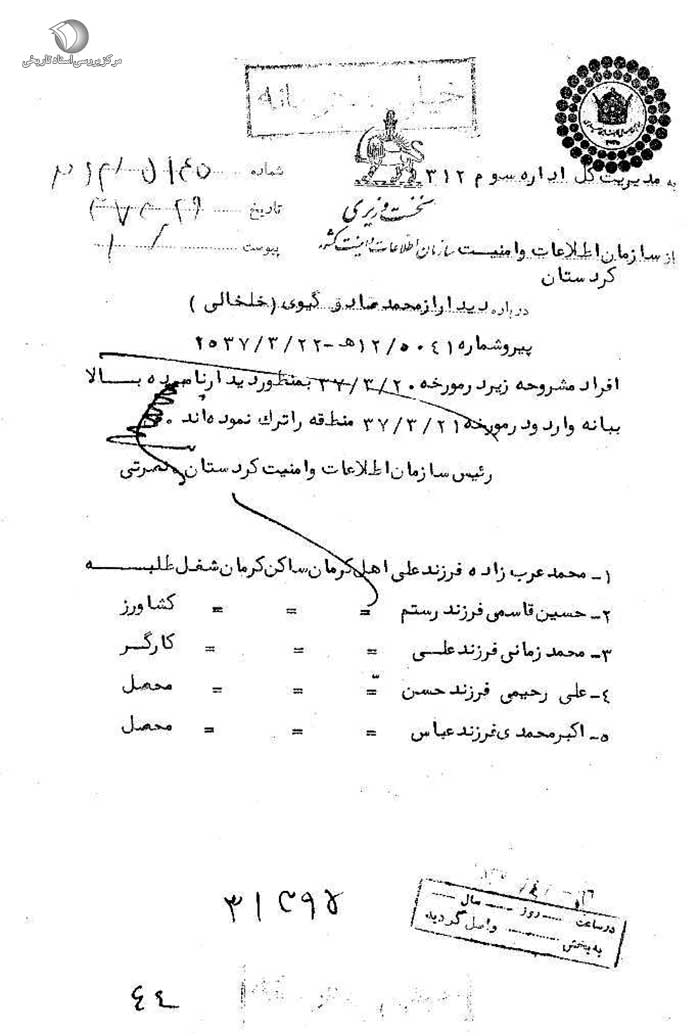 مرکز بررسی اسناد تاریخی
خیلی محرمانه
به مدیریت کل اداره سوم ۳۱۲
نخست وزیری
سازمان اطلاعات و امنیت کشور
شماره
تاریخ
پیوست
از سازمان اطلاعات و امنیت
کردستان
درباره دیدار از محمد صادق گیوی (خلخالی)
پیرو شماره ۱۲/۵۰۴۱هـ-۲۵۳۷/۳/۲۲
افراد مشروحه زیر در مورخه ۳۷/۳/۲۰ بمنظور دیدار نامبرده بالا
ببانه وارد و در مورخه ۳۷/۳/۲۱ منطقه را ترک نموده‌اند
رئیس سازمان اطلاعات و امنیت کردستان نصرتی
۱- محمد عرب زاده فرزند علی اهل کرمان ساکن کرمان شغل طلبه
۲- حسین قاسمی فرزند رستم = = = کشاورز
۳- محمد زمانی فرزند علی = = = کارگر
۴- علی رحیمی فرزند حسن = = = محصل
۵- اکبر محمدی فرزند عباس = = = محصل
در ساعت روز سال
به بخش واصل گردید
۴۴